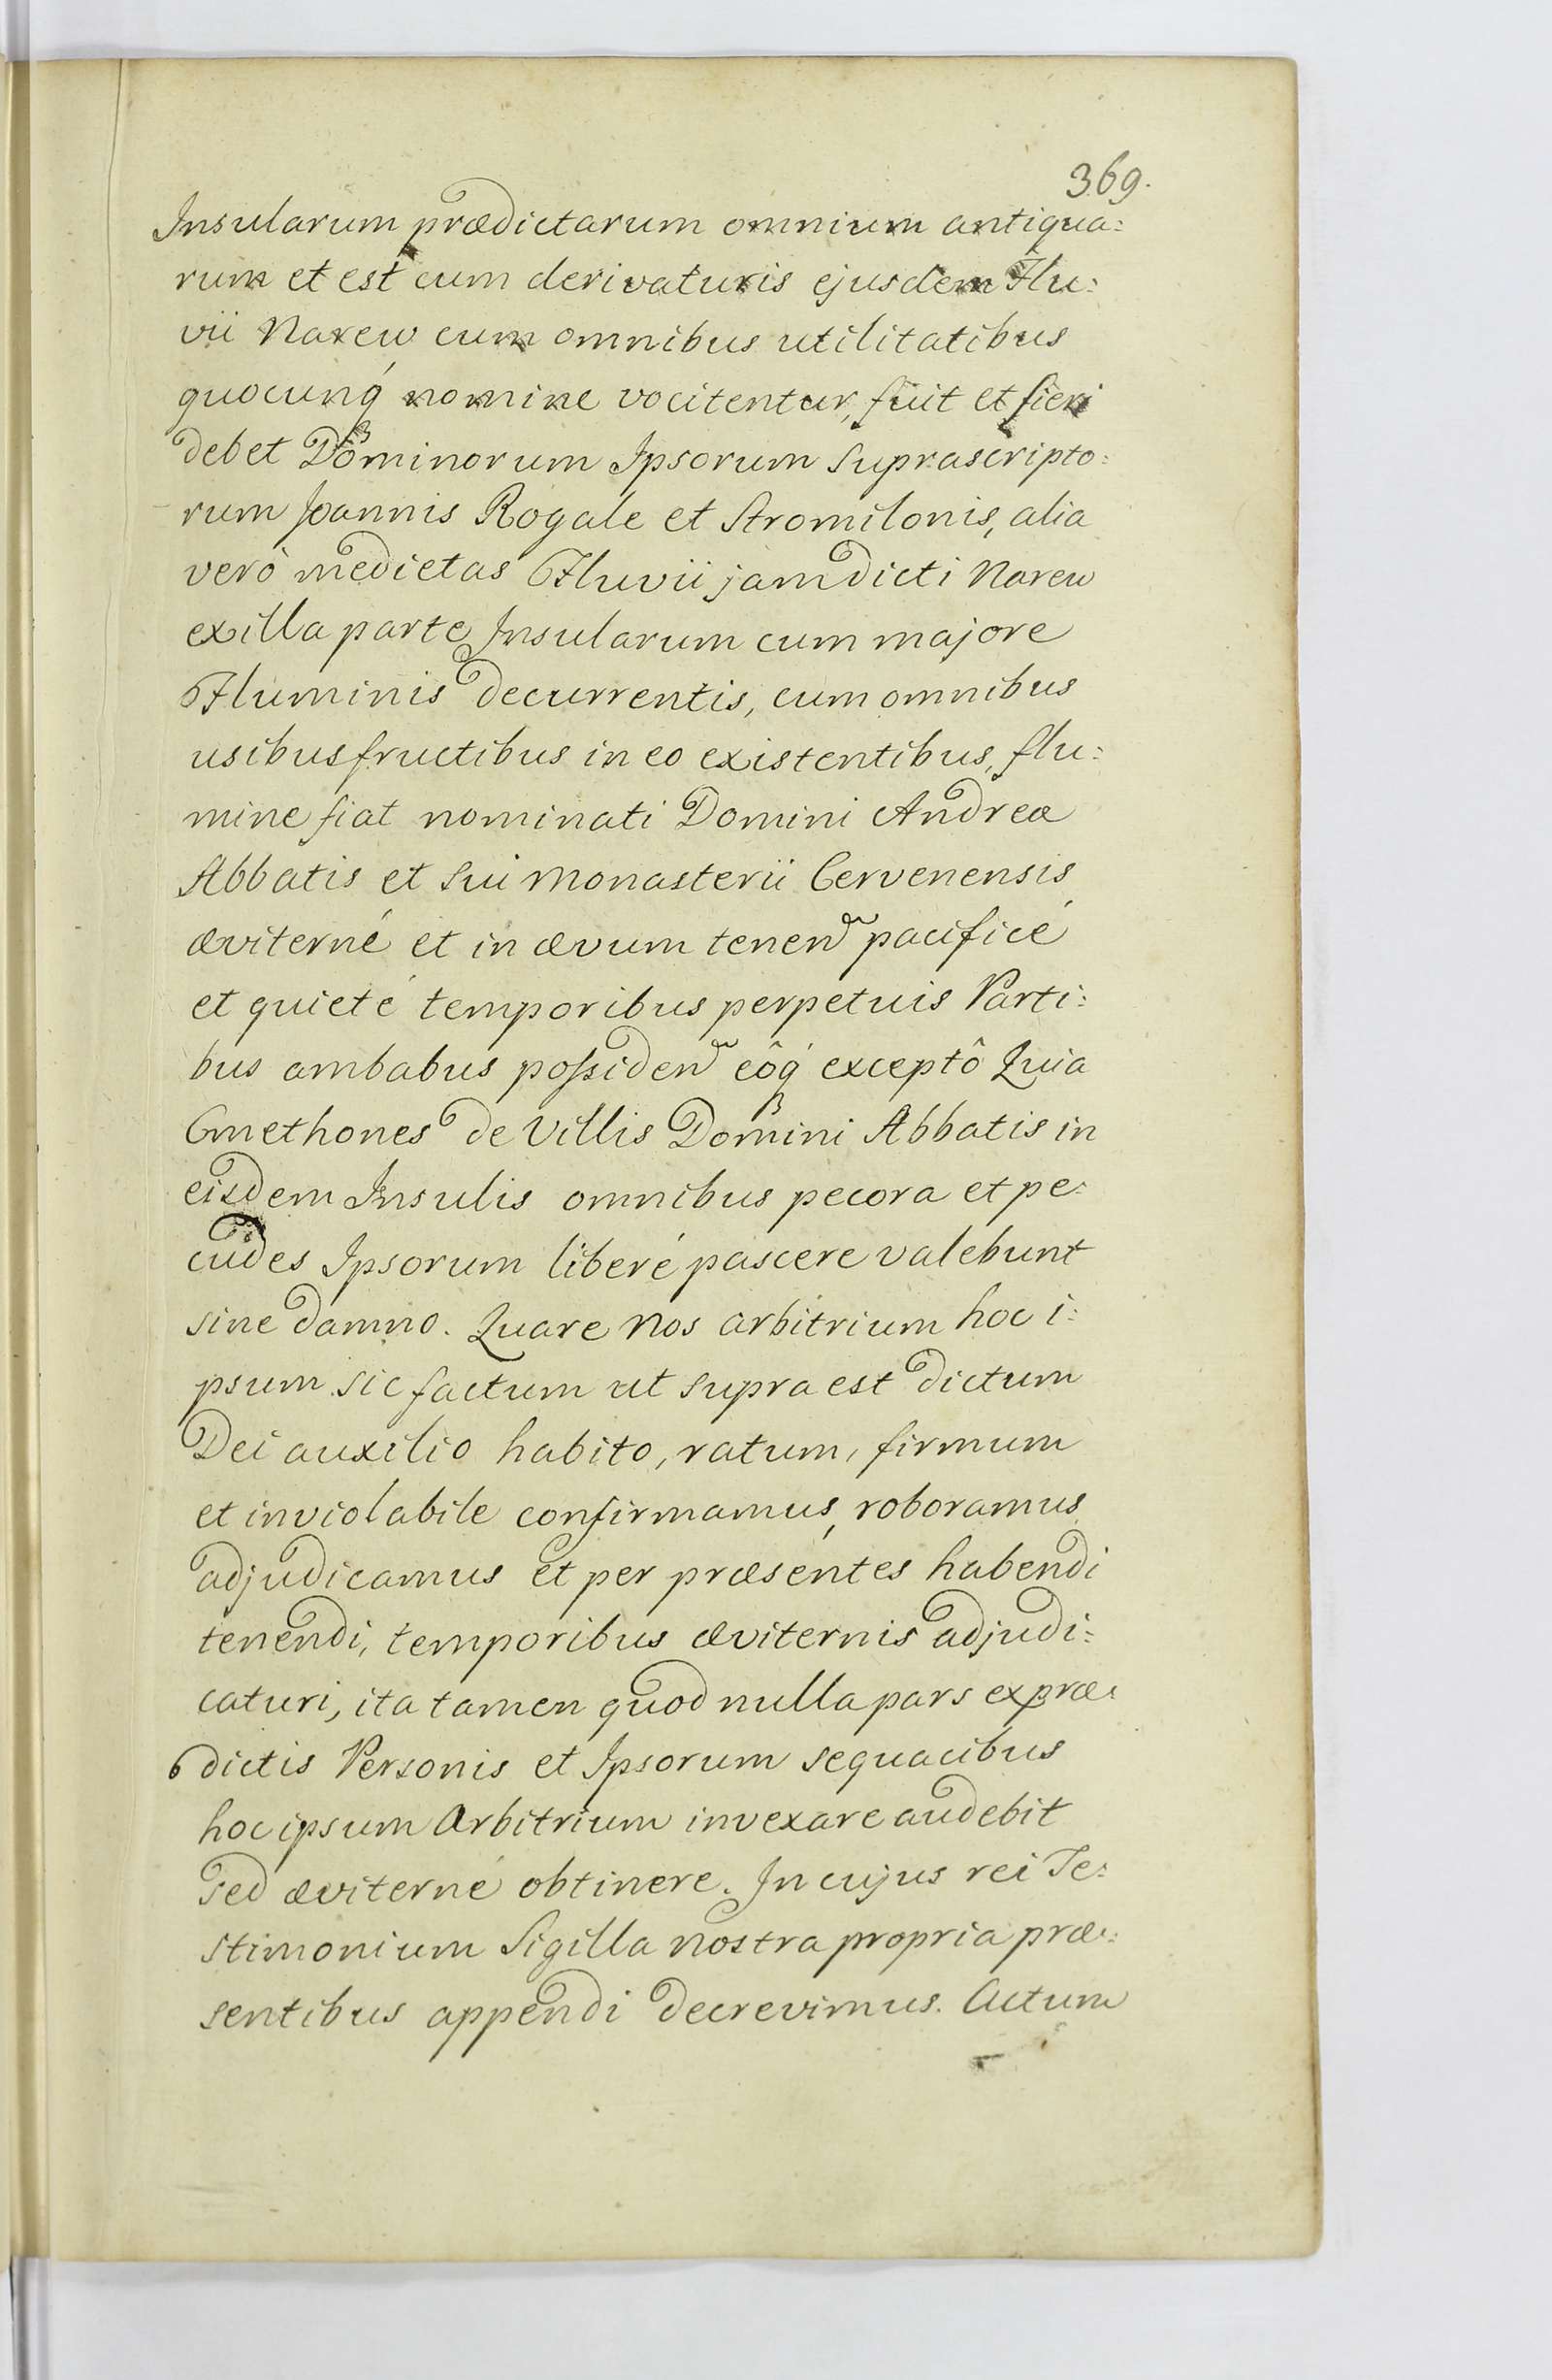 369.
Insularum prædictarum omnium antiqua:
rum et est cum derivaturis ejusdem Flu:
vii Narew cum omnibus utilitatibus
quocunq́ nomine vocitentur, fuit et fieri
debet Dominorum Ipsorum Suprascripto:
rum Joannis Rogale et Stromilonis, alia
verò medietas Fluvii jamdicti Narew
ex illa parte Insularum cum majore
Fluminis decurrentis, cum omnibus
usibusfructibus in eo existentibus, flu:
mine fiat nominati Domini Andreæ
Abbatis et Sui Monasterii Cervenensis
æviterné et in ævum tenen͠d pacificé
et quieté temporibus perpetuis Parti:
bus ambabus possiden͠d eôq́ exceptô Quia
Cmethones de Villis Domini Abbatis in
eisdem Insulis omnibus pecora et pe:
cudes Ipsorum liberé pascere valebunt
sine damno. Quare Nos arbitrium hoc i:
psum sic factum ut supra est dictum
Dei auxilio habito, ratum, firmum
et inviolabile confirmamus, roboramus
adjudicamus et per præsentes habendi
tenendi, temporibus æviternis adjudi:
caturi, ita tamen quod nulla pars ex præ:
dictis Personis et Ipsorum sequacibus
hoc ipsum Arbitrium invexare audebit
sed æviterné obtinere. In cujus rei Te:
stimonium Sigilla nostra propria præ:
sentibus appendi decrevimus. Actum